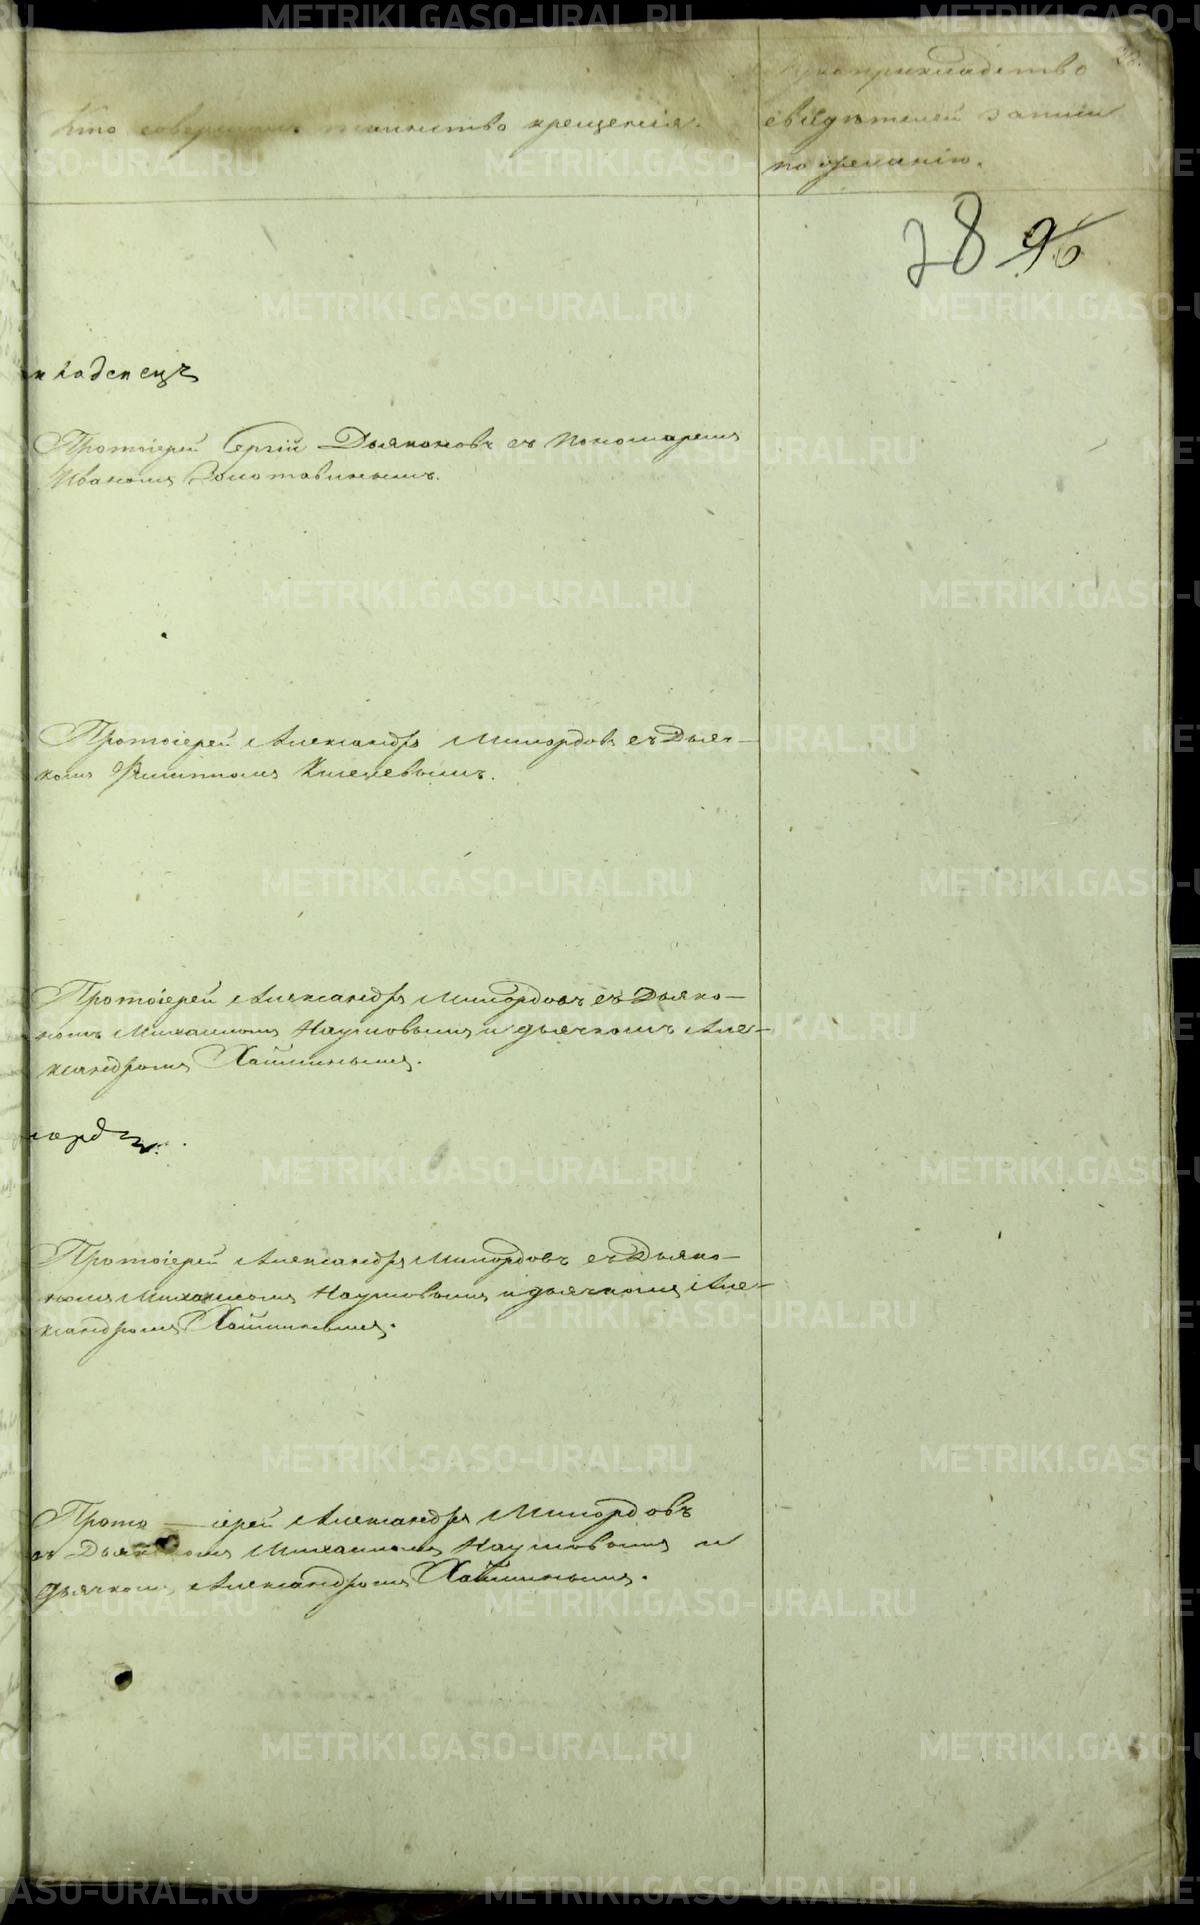 Кто совершалъ таинство крещенія.
Рукоприкладство
свидѣтелей записи
по желанію.
28 96
младенецъ
Протоіерей Сергій Дьяконовъ съ пономаремъ
Иваномъ Золотавинымъ.
Протоіерей Александръ Милордовъ съ Дьяч-
комъ Филиппомъ Киселевымъ.
Протоіерей Александръ Милордовъ съ Дьяко-
номъ Михаиломъ Наумовымъ и дьячкомъ Але-
ксандромъ Хайминымъ.
Протоіерей Александръ Милордовъ съ Дьяко-
номъ Михаиломъ Наумовымъ и дьячкомъ Але-
ксандромъ Хайминымъ.
Прото — іерей Александръ Милордовъ
съ Дьякономъ Михаиломъ Наумовымъ и
дьячкомъ Александромъ Хайминымъ.
METRIKI.GASO-URAL.RU